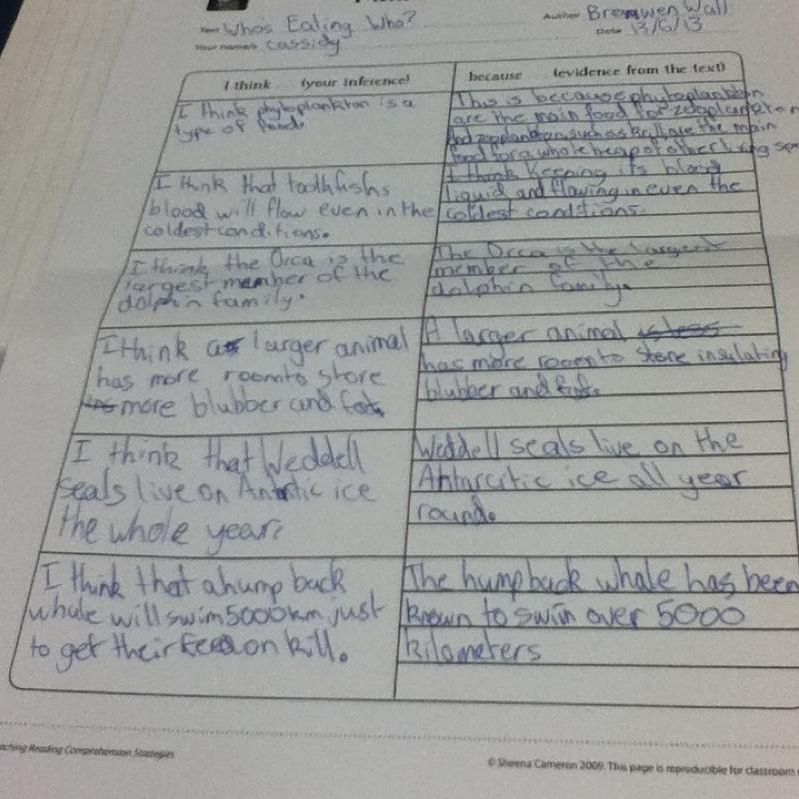 Text Who's Eating Who?
Author Bronwen Wall
Your name/s Cassidy
Date 13/6/13
I think . . . (your inference)
because . . . (evidence from the text)
I think phytoplankton is a
type of food.
This is because phytoplankton
are the main food for zooplankton
and zooplankton, such as krill, are the main
food for a whole heap of other living
I think that toothfishs
blood will flow even in the
coldest conditions.
I think Keeping its blood
liquid and flowing in even the
coldest conditions.
I think the Orca is the
largest member of the
dolphin family.
The Orca is the largest
member of the
dolphin family.
I think a larger animal
has more room to store
more blubber and fat.
A larger animal
has more room to store insulating
blubber and fat.
I think that Weddell
seals live on ice
the whole year.
Weddell seals live on the
Antarctic ice all year
round.
I think that a hump back
whale will swim 5000km just
to get their on krill.
The humpback whale has been
known to swim over 5000
kilometers
aching Reading Comprehension Strategies
© Sheena Cameron 2009. This page is reproducible for classroom